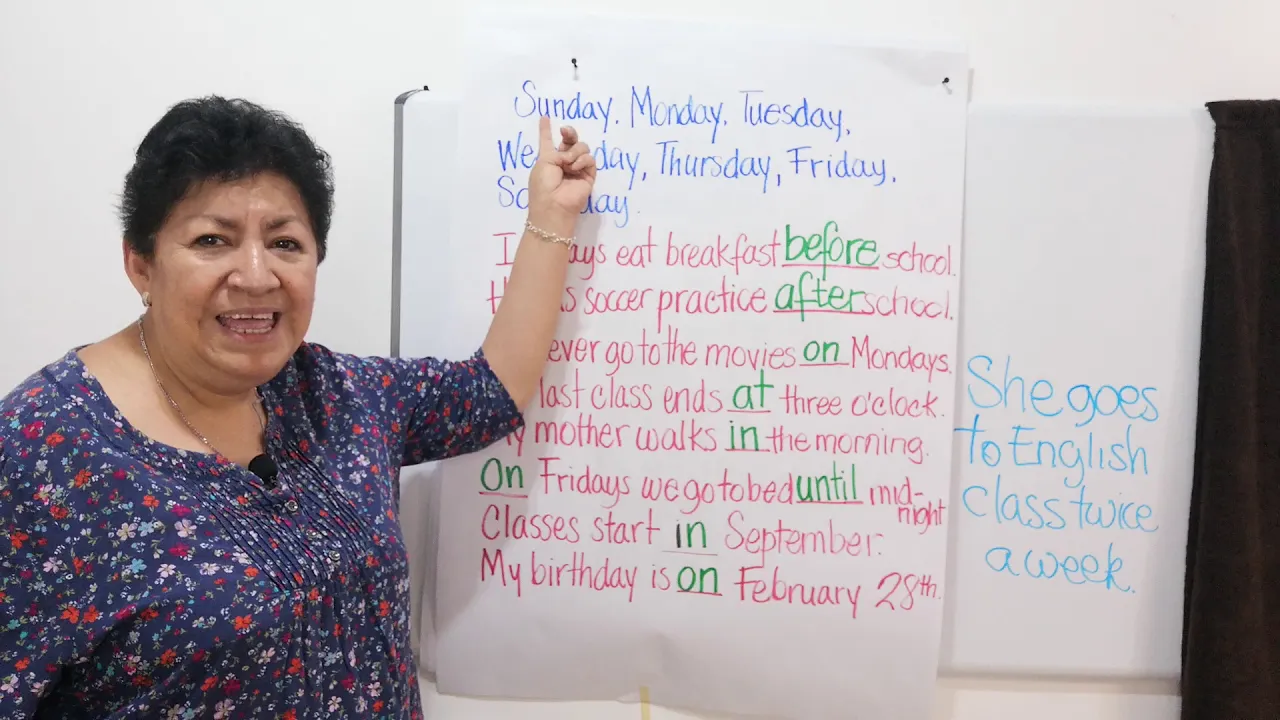 Sunday. Monday, Tuesday,
We day, Thursday, Friday.
day.
I ays eat breakfast before school.
soccer practice after school.
ever go to the movies on Mondays.
last class ends at three o'clock.
mother walks in the morning.
On Fridays we go to bed until mid-
night
Classes start in September.
My birthday is on February 28th.
She goes
to English
class twice
a week.